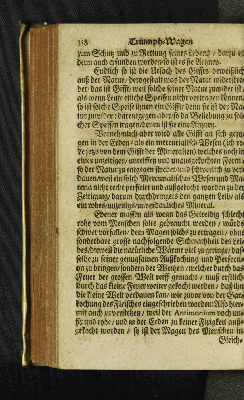 158 Triumph-Wagen
zum Schutz und zu Rettung seines Lebens / dazu es
denn auch erfunden worden / so ist es sie Artzney.
Endlich so ist die Ursach des Giffts beweißlich
auß der Natur / dergestalt was der Natur widerstre-
bet / das ist Gifft / weil solche seiner Natur zuwider ist /
als wenn Leute etliche Speisen nicht vertragen können /
so ist solche Speiß ihnen ein Gifft / denn sie ist der Na-
tur zuwider: dar entgegen aber so da Beliebung zu sol-
cher Speisen tragen / denen ist sie eine Artzney.
Vornehmlich aber wird alle Gifft an sich gezo-
gen in der Erden / als ein mercurialisch Wesen (ich re-
de jetzt von dem Gifft der Mineralien) welches noch in
eines unzeitigen / unreiffen und unausgekochten Form /
so der Natur zu entgegen strebet / und schwerlich zu ver-
dauen / weil ein solch Mercurialisches Wesen und Ma-
teria nicht recht perfecte und außgekocht worden zu der
Zeitigung / darum durchdringet den gantzen Leib / als
ein rohes / unzeitiges / unverdauliches Mineral.
Ebener massen als wann das Getreidig schlecht
rohe vom Menschen solte gebraucht werden / würde
schwer vorfallen / dem Magen solches zu ertragen / ohne
sonderbare grosse nachfolgende Schwachheit des Lei-
bes / dieweil die natürliche Wärme viel zu gering / das-
selbe zu seiner genugsamen Außkochung und Perfecti-
on zu bringen / sondern der Weitzen / welcher durch das
Feuer der grossen Welt reiff gemacht / muß erstlich
durch das kleine Feuer weiter gekocht werden / daß ihn
die kleine Welt verdauen kan / wie zuvor von der Gar-
kochung des Fleisches eingeschrieben worden: Also hier-
mit auch zu verstehen / weil der Antimonium noch un-
reiff und rohe / und in der Erden zu keiner Fixigkeit auß-
gekocht worden / so ist der Magen des Menschen in
Gleich-